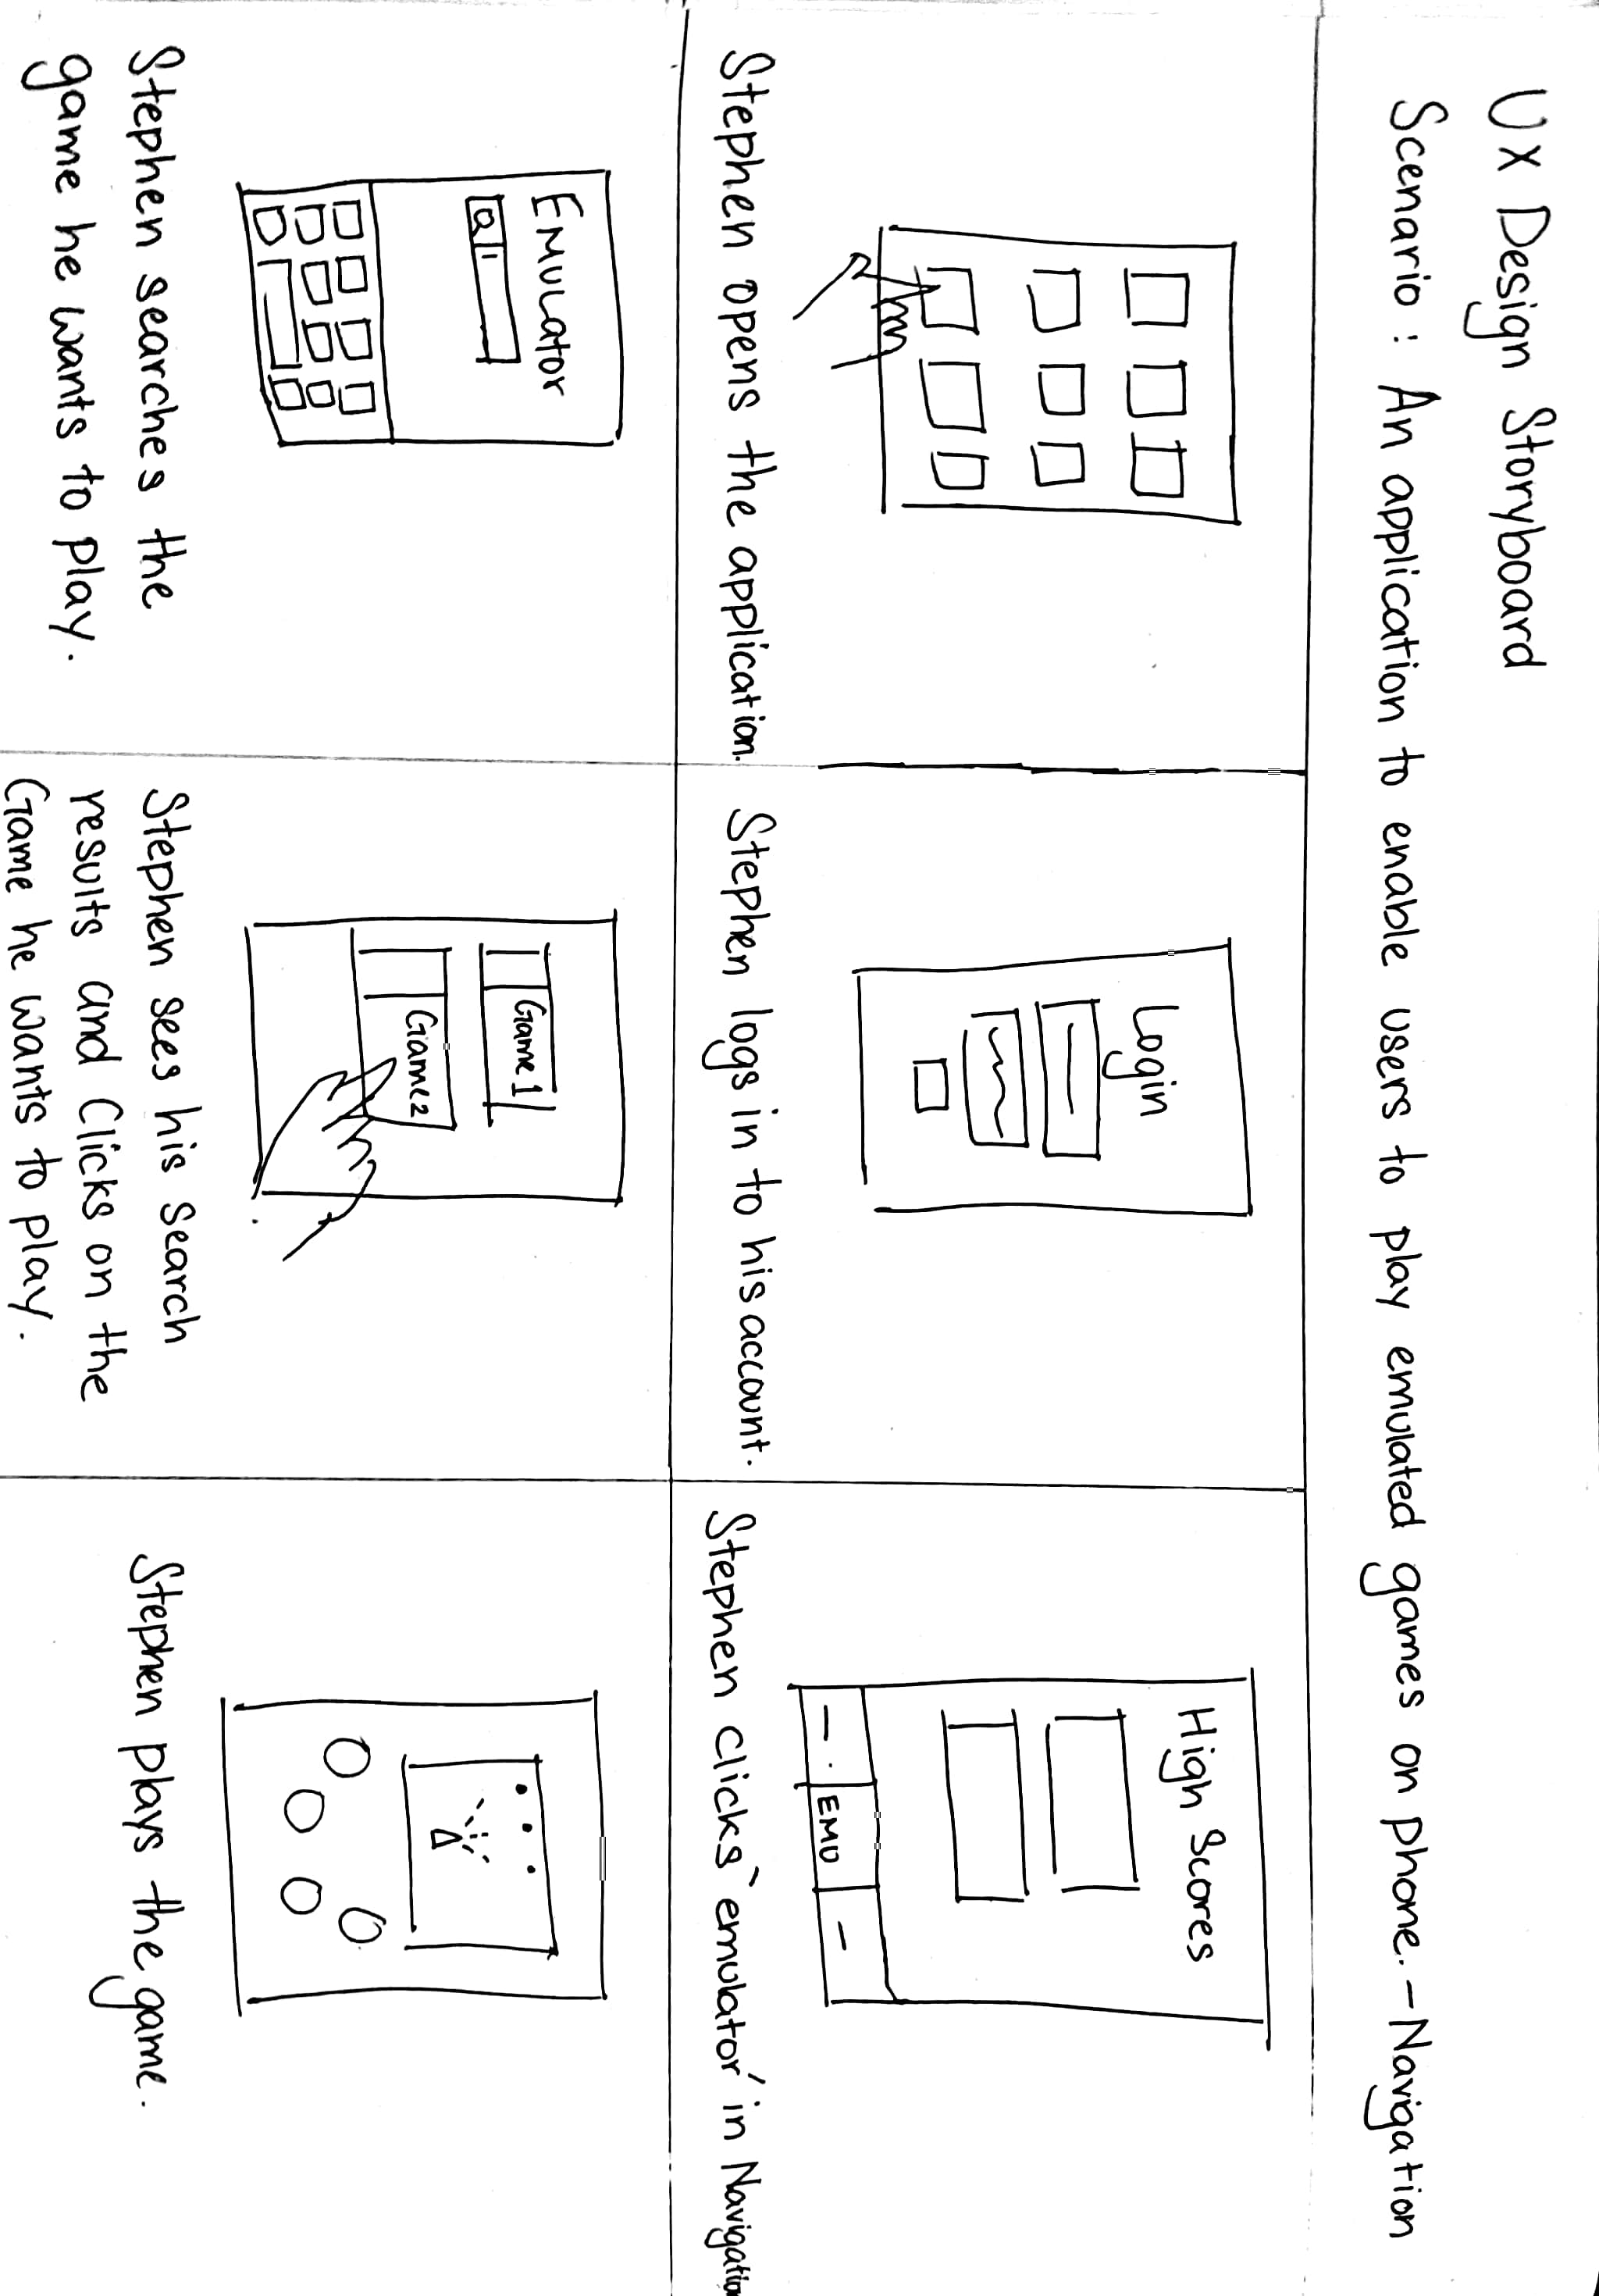 UX Design Storyboard
Scenario : An application to enable users to play emulated games on phone. - Navigation
High Scores
Login
EMU
Stephen opens the application.
Stephen logs in to his account.
Stephen clicks `emulator´ in Navigation
Emulator
Game 1
Game 2
Stephen searches the
game he wants to play.
Stephen sees his search
results and clicks on the
Game he wants to play.
Stephen plays the game.